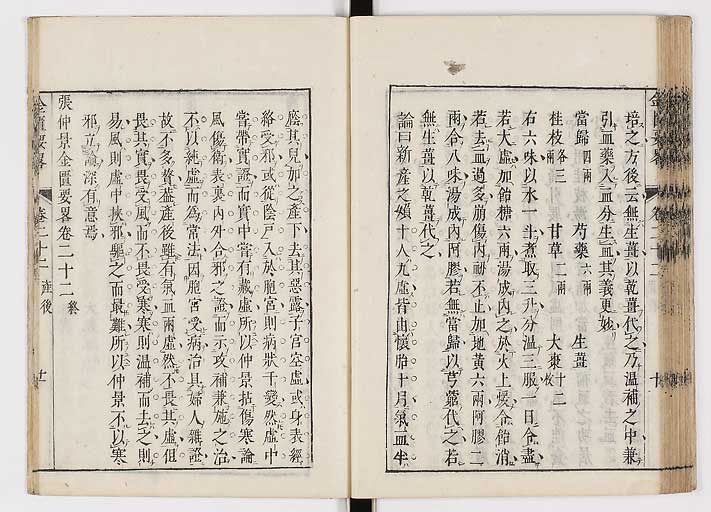 培之方後云無生薑以乾薑代之乃温補之中兼
引血藥入血分生血其義更妙
當歸四兩 芍藥六兩 生薑
桂枝各三兩 甘草二兩 大棗十二枚
右六味以水一斗煮取三升分温三服一日令盡
若大虛加飴糖六兩湯成內之於火上煖令飴消
若去血過多崩傷內衂不止加地黃六兩阿膠二
兩合八味湯成內阿膠若無當歸以芎藭代之若
無生薑以乾薑代之
論曰新產之婦十人九虛皆由懷胎十月氣血半
廕其兒加之產下去其惡露子宮空虛或身表經
絡受邪或從陰戶入於胞宮則病狀千變然虛中
當帶實證而實中當有藏虛所以仲景拈傷寒論
風傷衛表裏內外合邪之證而示攻補兼施之治
不以純虛而為常法因胞宮受病治具婦人雜證
故不多贅蓋產後雖有氣血兩虛然不畏其虛但
畏其實畏受風而不畏受寒寒則温補而去之則
易風則虛中挾邪驅之而最難所以仲景不以寒
邪立論深有意焉
張仲景金匱要畧卷二十二終
金匱要畧 卷二十二 產後 十一